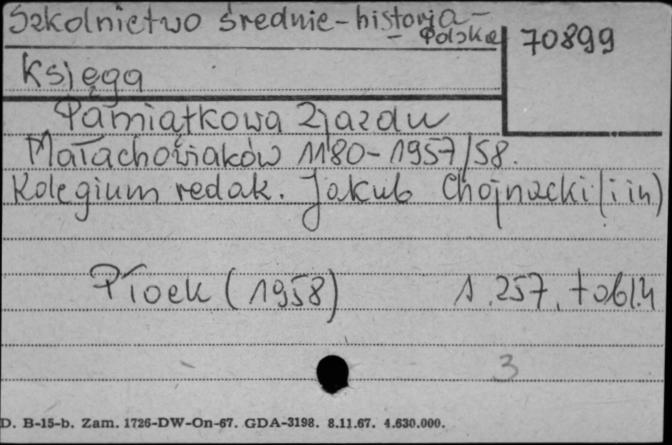 Szkolnictwo średnie - historja -
- Polska
70899
Księga
Pamiątkowa Zjazdu
Małachowiaków 1180-1957/58.
Kolegium redak. Jakub Chojnacki (i in)
Płock (1958) s. 257, tabl. 4
3
D. B-15-b. Zam. 1726-DW-On-67. GDA-3198. 8.11.67. 4.630.000.